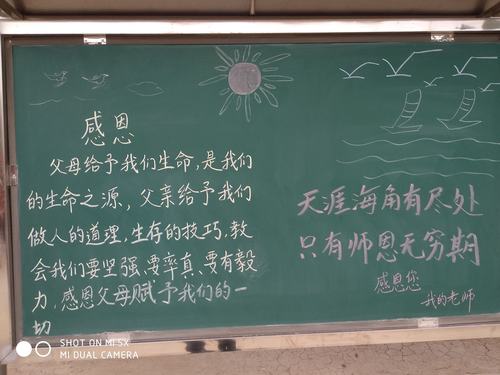 感恩
父母给予我们生命,是我们
的生命之源,父亲给予我们
做人的道理,生存的技巧,教
会我们要坚强、要率真、要有毅
力,感恩父母赋予我们的一
切
天涯海角有尽处
只有师恩无穷期
感恩您
我的老师
SHOT ON MI 5X
MI DUAL CAMERA